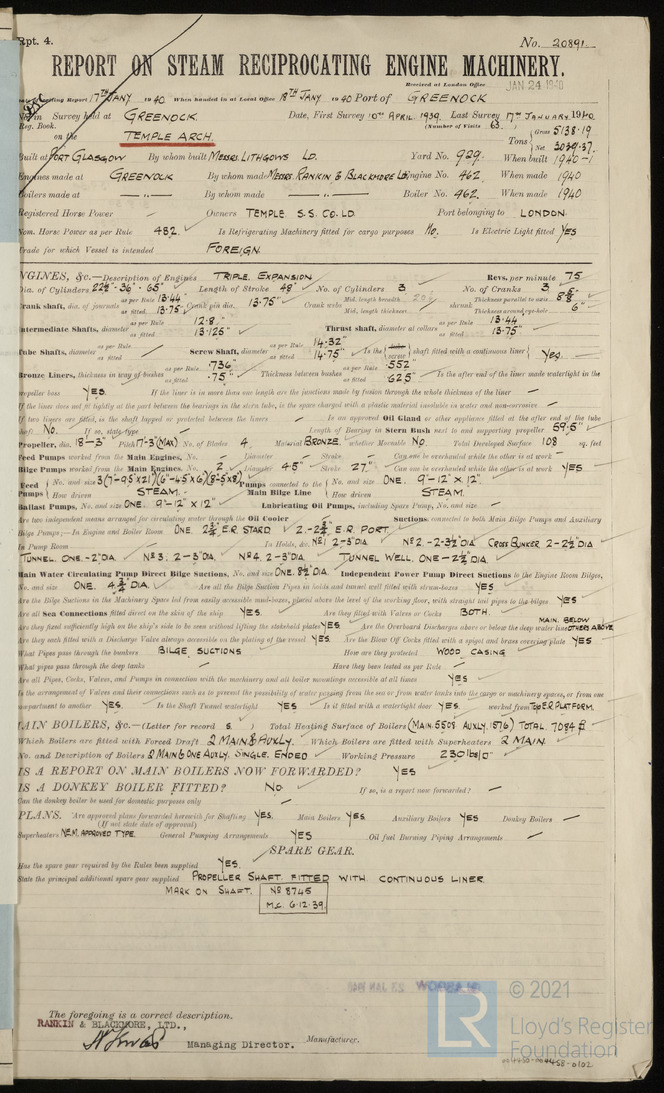 Rpt. 4.
No. 20891
REPORT ON STEAM RECIPROCATING ENGINE MACHINERY.
Received at London Office JAN 24 1940
writing Report 17TH JANY 1940 When handed in at Local Office 18TH JANY 1940 Port of GREENOCK
No. in Survey held at GREENOCK Date, First Survey 10TH APRIL 1939 Last Survey 17TH JANUARY 1940
Reg. Book. (Number of Visits 63.)
on the TEMPLE ARCH. Tons Gross 5138.19 Net 3039.37.
Built at PORT GLASGOW By whom built MESSRS. LITHGOWS LD. Yard No. 929. When built 1940-1
Engines made at GREENOCK By whom made MESSRS. RANKIN & BLACKMORE LD. Engine No. 462 When made 1940
Boilers made at —"— By whom made —"— Boiler No. 462. When made 1940
Registered Horse Power — Owners TEMPLE S.S. CO. LD. Port belonging to LONDON.
Nom. Horse Power as per Rule 482. Is Refrigerating Machinery fitted for cargo purposes No. Is Electric Light fitted Yes
Trade for which Vessel is intended FOREIGN.
ENGINES, &c.—Description of Engines TRIPLE EXPANSION Revs. per minute 75
Dia. of Cylinders 22½"-36"-65" Length of Stroke 48" No. of Cylinders 3 No. of Cranks 3
Crank shaft, dia. of journals as per Rule 13.44 as fitted 13.75 Crank pin dia. 13.75" Crank webs Mid. length breadth Mid. length thickness shrunk Thickness parallel to axis Thickness around eye-hole 6"
Intermediate Shafts, diameter as per Rule 12.8 as fitted 13.125" Thrust shaft, diameter at collars as per Rule 13.44 as fitted 13.75"
Tube Shafts, diameter as per Rule — as fitted — Screw Shaft, diameter as per Rule 14.32" as fitted 14.75" Is the screw shaft fitted with a continuous liner Yes.
Bronze Liners, thickness in way of bushes as per Rule .736" as fitted .75" Thickness between bushes as per Rule .552" as fitted .625" Is the after end of the liner made watertight in the
propeller boss YES. If the liner is in more than one length are the junctions made by fusion through the whole thickness of the liner —
If the liner does not fit tightly at the part between the bearings in the stern tube, is the space charged with a plastic material insoluble in water and non-corrosive —
If two liners are fitted, is the shaft lapped or protected between the liners — Is an approved Oil Gland or other appliance fitted at the after end of the tube
shaft No. If so, state type — Length of Bearing in Stern Bush next to and supporting propeller 59.5"
Propeller, dia. 18'-3" Pitch 17'-3" (MAX) No. of Blades 4 Material BRONZE whether Moveable No Total Developed Surface 108 sq. feet
Feed Pumps worked from the Main Engines, No. — Diameter — Stroke — Can one be overhauled while the other is at work —
Bilge Pumps worked from the Main Engines, No. 2 Diameter 4.5" Stroke 27" Can one be overhauled while the other is at work YES
Feed Pumps No. and size 3 (7"-9.5"x21") (6"-4.5"x6") (8"-5"x8") How driven STEAM. Pumps connected to the Main Bilge Line No. and size ONE. 9"-12"x12" How driven STEAM.
Ballast Pumps, No. and size ONE. 9"-12"x12" Lubricating Oil Pumps, including Spare Pump, No. and size —
Are two independent means arranged for circulating water through the Oil Cooler — Suctions, connected to both Main Bilge Pumps and Auxiliary
Bilge Pumps;—In Engine and Boiler Room ONE. 2¾" E.R. STARD 2.-2¾" E.R. PORT.
In Pump Room — In Holds, &c. No 1 2-3" DIA No 2.-2-3½" DIA CROSS BUNKER 2-2½" DIA
TUNNEL. ONE.-2" DIA No 3. 2-3" DIA No 4. 2-3" DIA TUNNEL WELL. ONE-2½" DIA.
Main Water Circulating Pump Direct Bilge Suctions, No. and size ONE. 8½" DIA Independent Power Pump Direct Suctions to the Engine Room Bilges,
No. and size ONE. 4¾" DIA. Are all the Bilge Suction Pipes in holds and tunnel well fitted with strum-boxes YES
Are the Bilge Suctions in the Machinery Space led from easily accessible mud-boxes, placed above the level of the working floor, with straight tail pipes to the bilges YES
Are all Sea Connections fitted direct on the skin of the ship YES. Are they fitted with Valves or Cocks BOTH.
Are they fixed sufficiently high on the ship's side to be seen without lifting the stokehold plates YES. Are the Overboard Discharges above or below the deep water line MAIN. BELOW OTHERS ABOVE
Are they each fitted with a Discharge Valve always accessible on the plating of the vessel YES. Are the Blow Off Cocks fitted with a spigot and brass covering plate YES
What Pipes pass through the bunkers BILGE SUCTIONS How are they protected WOOD CASING
What pipes pass through the deep tanks — Have they been tested as per Rule —
Are all Pipes, Cocks, Valves, and Pumps in connection with the machinery and all boiler mountings accessible at all times YES
Is the arrangement of Valves and their connections such as to prevent the possibility of water passing from the sea or from water tanks into the cargo or machinery spaces, or from one
compartment to another YES. Is the Shaft Tunnel watertight YES Is it fitted with a watertight door YES. worked from TOP E.R. PLATFORM.
MAIN BOILERS, &c.—(Letter for record S.) Total Heating Surface of Boilers (MAIN. 5508 AUXLY. 1576) TOTAL 7084
Which Boilers are fitted with Forced Draft 2 MAIN & AUXLY. Which Boilers are fitted with Superheaters 2 MAIN
No. and Description of Boilers 2 MAIN & ONE AUXLY. SINGLE. ENDED Working Pressure 230 lbs/□"
IS A REPORT ON MAIN BOILERS NOW FORWARDED? YES
IS A DONKEY BOILER FITTED? No. If so, is a report now forwarded? —
Can the donkey boiler be used for domestic purposes only —
PLANS. Are approved plans forwarded herewith for Shafting YES. Main Boilers YES Auxiliary Boilers YES Donkey Boilers —
(If not state date of approval)
Superheaters N.E.M. APPROVED TYPE. General Pumping Arrangements YES Oil fuel Burning Piping Arrangements —
SPARE GEAR.
Has the spare gear required by the Rules been supplied YES.
State the principal additional spare gear supplied PROPELLER SHAFT. FITTED WITH CONTINUOUS LINER.
MARK ON SHAFT. No 8745
M.C. 6.12.39.
GLASGOW 23 JAN 1940
The foregoing is a correct description,
RANKIN & BLACKMORE, LTD.,
Managing Director. Manufacturer.
LR
© 2021
Lloyd's Register
Foundation